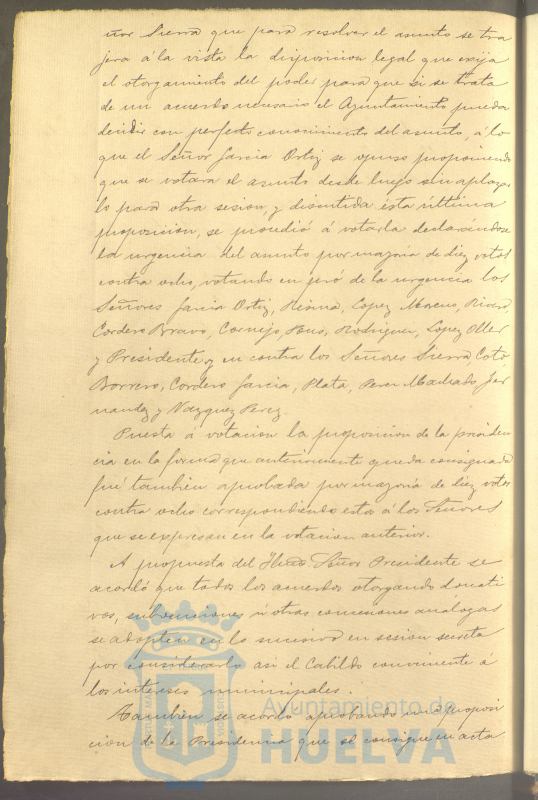 ñor Sierra que para resolver el asunto se tra
jera á la vista la disposicion legal que exija
el otorgamiento del poder para que si se trata
de un acuerdo necesario el Ayuntamiento pueda
decidir con perfecto conocimiento del asunto, á lo
que el Señor Garcia Ortiz se opuso proponiendo
que se votara el asunto desde luego sin aplazar
lo para otra sesion, y discutida esta última
proposicion, se procedió á votarla declarándose
la urgencia del asunto por mayoria de diez votos
contra ocho, votando en pró de la urgencia los
Señores Garcia Ortiz, Lopez Moreno,
Cordero Bravo, Cornejo, Rodriguez, Lopez Oller
y Presidente y en contra los Señores Sierra, Coto
Borrero, Cordero Garcia, Plata, Perez Machado, Fer
nandez y Vazquez Perez.
Puesta á votacion la proposicion de la presiden
cia en la forma que anteriormente queda consignada
fué tambien aprobada por mayoria de diez votos
contra ocho correspondiendo estos á los Señores
que se expresan en la votacion anterior.
A propuesta del Señor Presidente se
acordó que todos los acuerdos otorgando donati
vos, subvenciones ú otras concesiones análogas
se adopten en lo sucesivo en sesion secreta
por considerarlo asi el Cabildo conveniente á
los intereses municipales.
Tambien se acordó aprobando una proposi
cion de la Presidencia que se consigne en acta
Ayuntamiento de
HUELVA